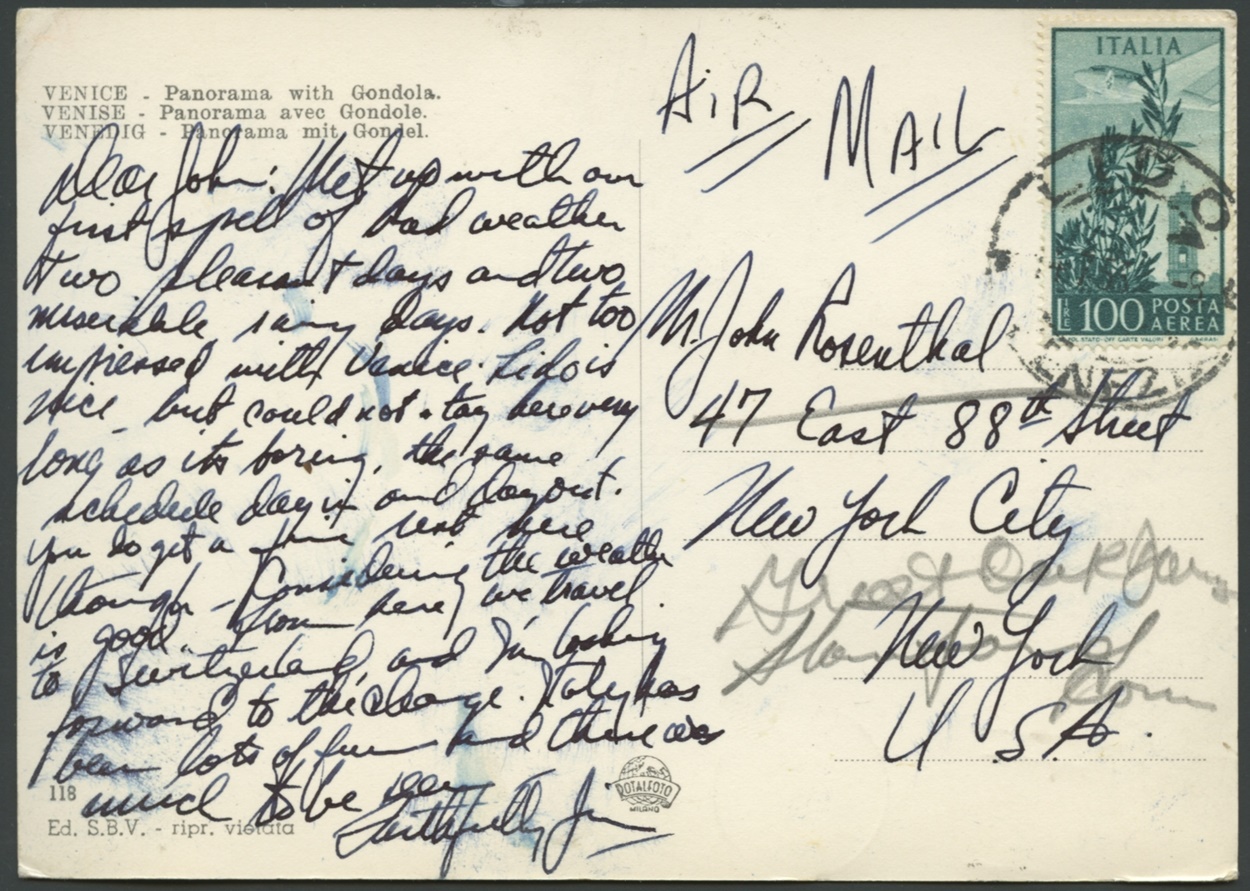 VENICE - Panorama with Gondola.
VENISE - Panorama avec Gondole.
VENEDIG - Panorama mit Gondel.
Dear John: Met up with our
first spell of bad weather
two pleasant days and two
miserable rainy days. Not too
impressed with Venice. Lido is
nice but could not stay here very
long as its boring, the same
schedule day in and day out.
You do get a fine rest here
though - Considering the weather
is good. From here we travel
to Switzerland, and I'm looking
forward to the change. Italy has
been lots of fun and there was
much to be seen
Faithfully, Jim
118
Ed. S.B.V. - ripr. vietata
ROTALFOTO
MILANO
AIR MAIL
ITALIA
LIRE 100 POSTA AEREA
LIDO
VENEZIA
Mr. John Rosenthal
47 East 88th Street
New York City
New York
U.S.A.
Great Oak
Conn